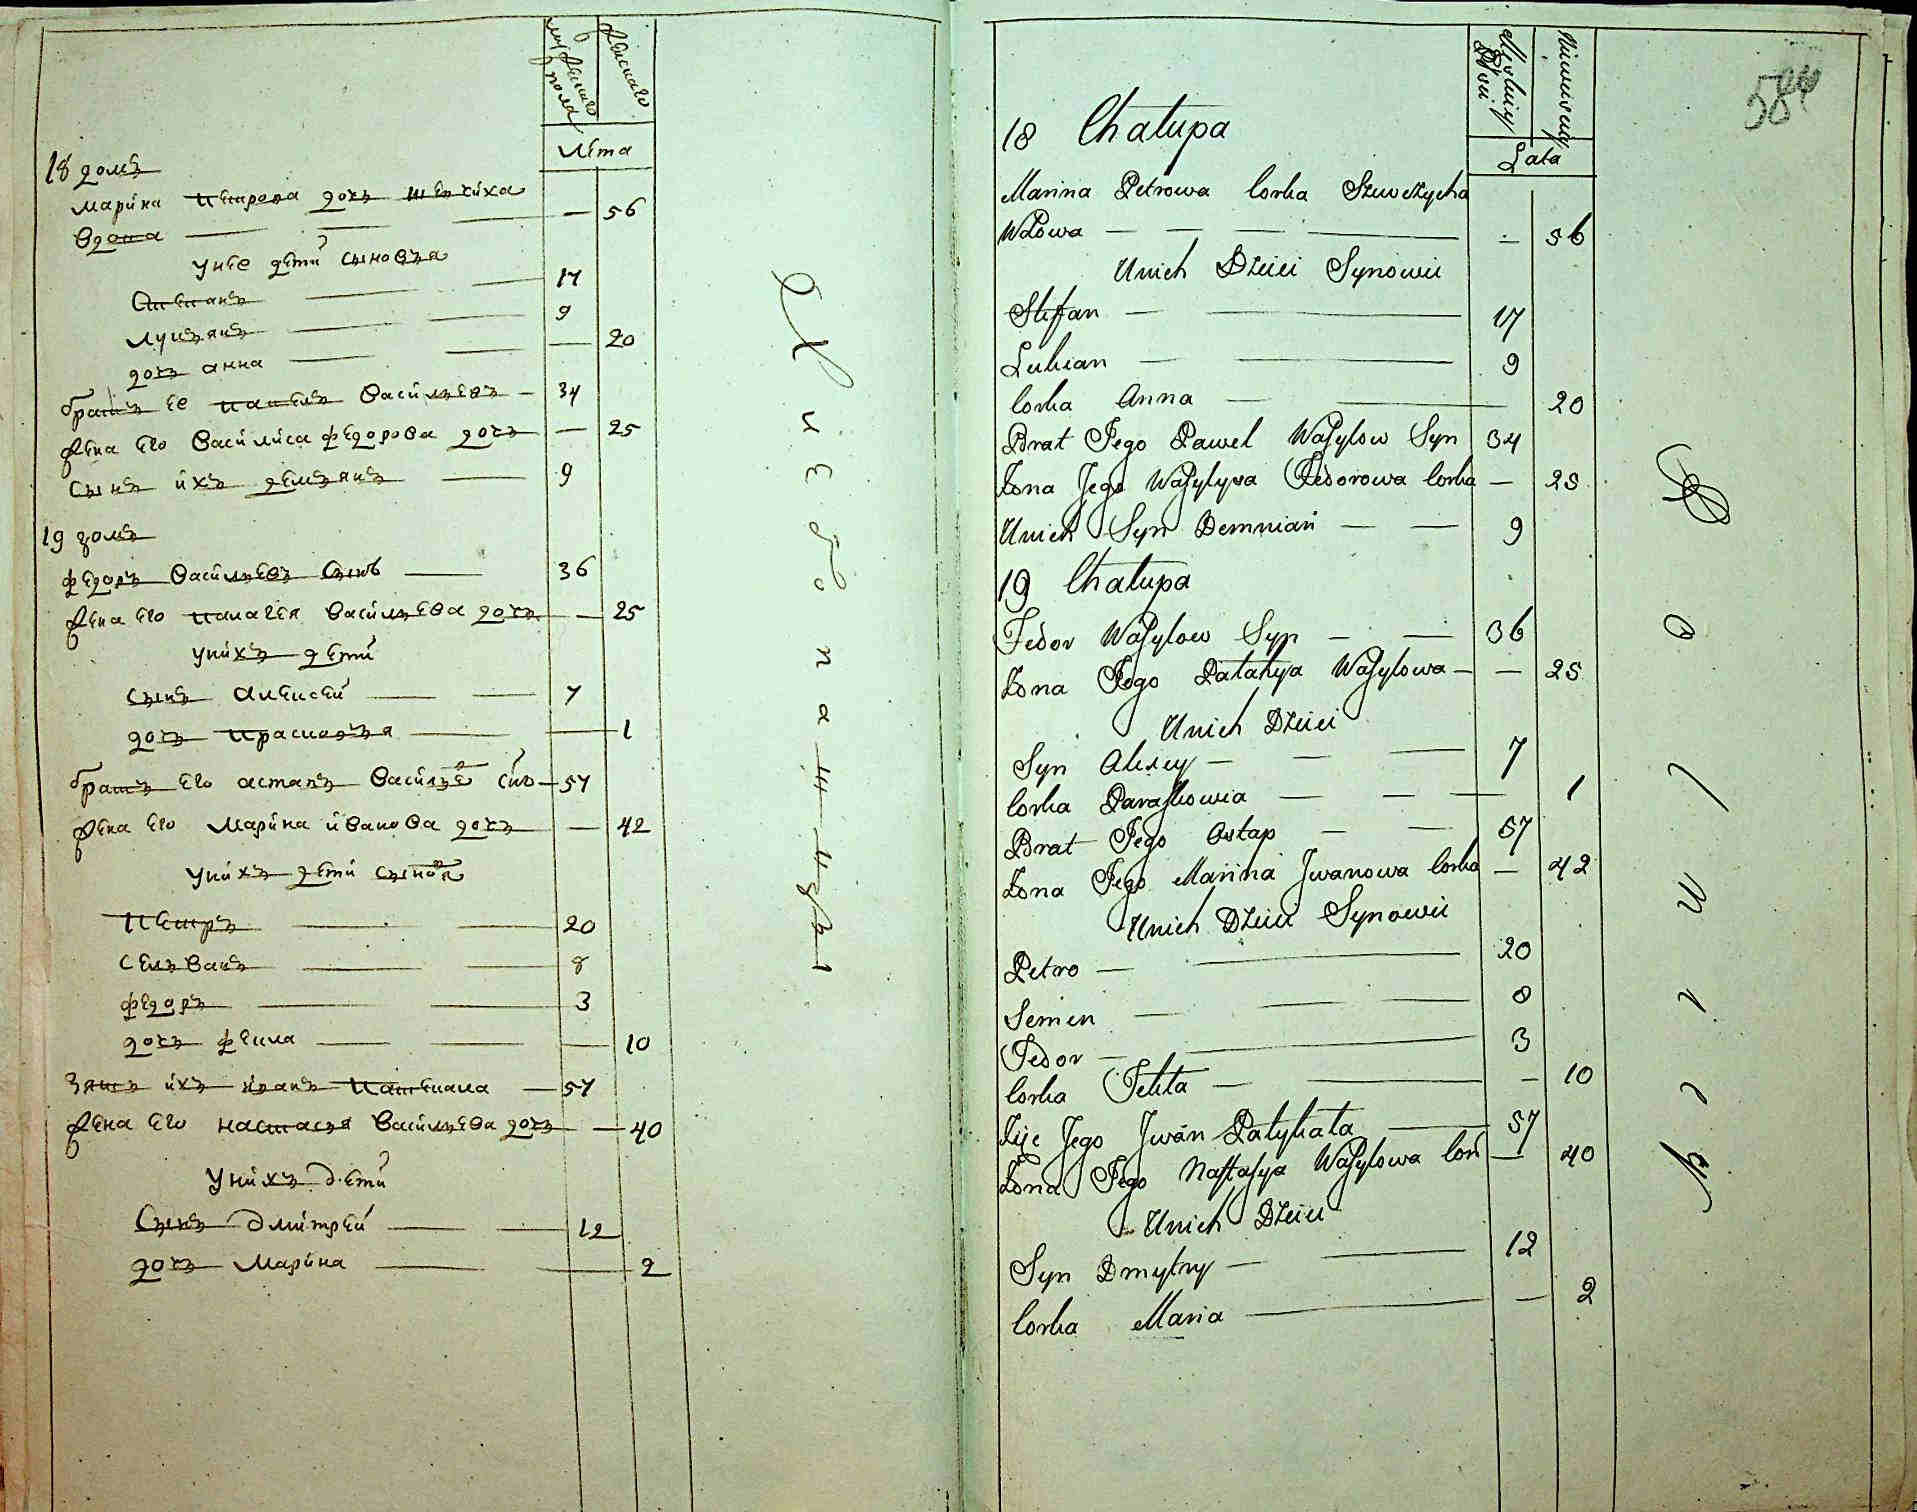 мужескаго пола
женскаго
Лѣта
18 домъ
марина петрова дочь шевчиха
вдова — — — — 56
у нее дети сыновья
Степанъ — — 17
лукьянъ — — 9
дочь анна — — — 20
братъ ее павелъ васильевъ — 34
жена его василиса федорова дочь — 25
сынъ ихъ демьянъ — 9
19 домъ
федоръ васильевъ сынъ — 36
жена его палагея васильева дочь — 25
у нихъ дети
сынъ алексей — — 7
дочь прасковья — — 1
братъ его астапъ василье сынъ — 57
жена его марина иванова дочь — 42
у нихъ дети сынов
петръ — — 20
сельванъ — — 8
федоръ — — 3
дочь фекла — — — 10
зять ихъ иванъ — 57
жена его настасья васильева дочь — 40
у нихъ дети
Сынъ дмитрей — — 12
дочь марина — — 2
Хлиборатицы
Męskiey Płci
Niewieściey
Lata
584
18 Chałupa
Marina Petrowa Corka Szewczycha
Wdowa — — — — — 56
Unich Dzieci Synowie
Stefan — — 17
Lukian — — 9
Corka Anna — — 20
Brat Jego Pawel Wasylow Syn 34
Żona Jego Wasylysa Fedorowa Corka — 25
Unich Syn Demnian — — 9
19 Chałupa
Fedor Wasylow Syn — — 36
Żona Jego Palahya Wasylowa — — 25
Unich Dzieci
Syn Alexey — — — 7
Corka Paraskowia — — — 1
Brat Jego Ostap — — 57
Żona Jego Marina Jwanowa Corka — 42
Unich Dzieci Synowie
Petro — — 20
Semen — — — 8
Fedor — — 3
Corka Fekla — — — 10
Zięc Jego Jwan — 57
Żona Jego Nastasya Wasylowa Cor — 40
Unich Dzieci
Syn Dmytry — — 12
Corka Maria — — 2